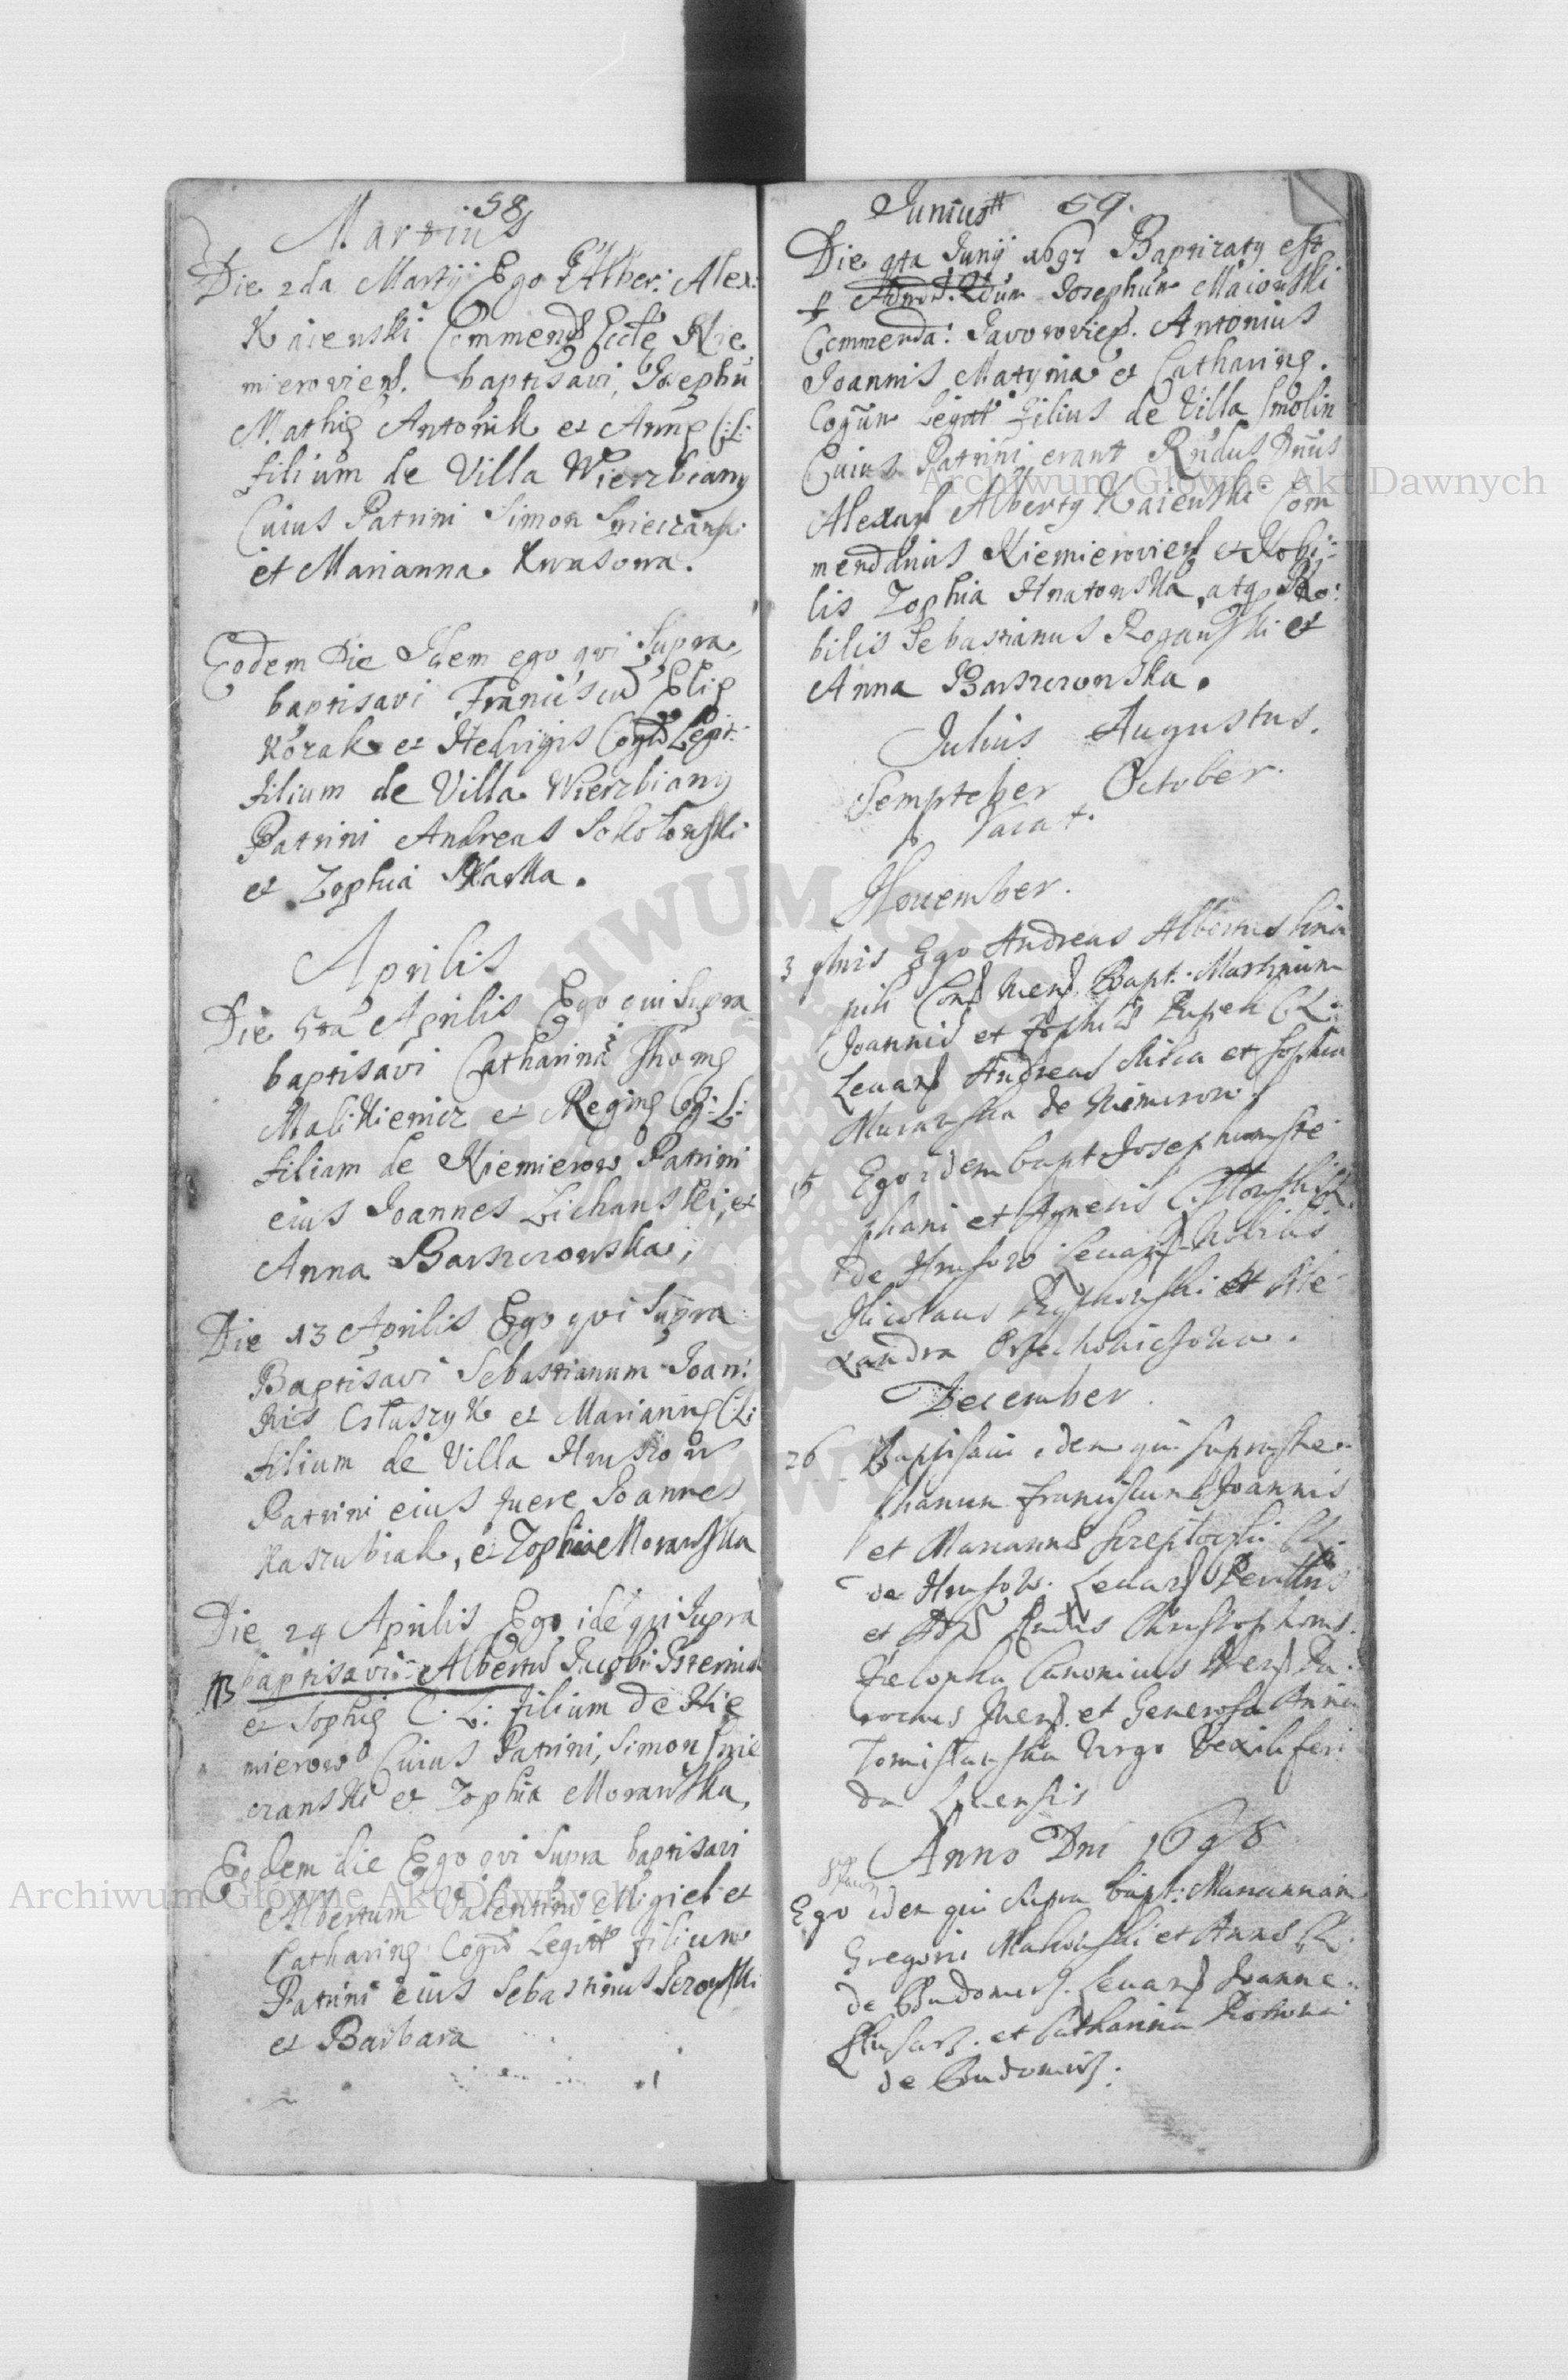 58
Martius
Die 2da Martij Ego Alber: Alex:
Kaienski Commend Eccle Nie
mieroviens. baptisavi, Josephu
Mathię Antonik et Annę C:L:
filium de Villa Wierzbiany
Cuius Patrini Simon Smieczanski
et Marianna Kwasowa.
Eodem Die Idem ego qvi Supra,
baptisavi Franciscu Elię
Kozak et Hedvigis Cogū Legit:
filium de Villa Wierzbiany
Patrini Andreas Sokołowski
et Zophia
Aprilis
Die 5ta Aprilis Ego qui Supra
baptisavi Catharinā Thomę
Malikiemicz et Reginę C:L:
filiam de Niemierow Patrini
eius Joannes Lichanski, et
Anna Barszczowska,
Die 13 Aprilis Ego qvi Supra
Baptisavi Sebastianum Joan:
nis Cstuszyk et Mariannę C:L:
filium de Villa Hruszow
Patrini eius fuere Joannes
Kaszubiak, et Zophia Morawska
Die 24 Aprilis Ego idē qvi Supra
NB baptisavi Albertū Jacobi
et Sophię C: L: filium de Nie
mierow Cuius Patrini, Simon Smie
czanski et Zophia Morawska,
Eodem die Ego qvi Supra baptisavi
Albertum Valentini Migiel et
Catharinę Cogū Legitt filium
Patrini eius Sebastinus
et Barbara
Junius 59.
Die 9ta Junij 1697 Baptizaty est
p Josephum Maiowski
Commenda: Javoroviens. Antonius
Joannis Matynia et Catharinę.
Cogūm Legitt filius de Villa Smolin
Cuius Patrini erant Rndus Dnūs
Alexand Alberty Kaienski Com
mendarius Niemieroviens et Nobi-
lis Zophia Hnatowska, atq No:
bilis Sebastianus Rogowski et
Anna Barszczowska.
Julius Augustus.
Sempteber October.
Vacat.
November.
3 Ego Andreas Albertus
Bapt: Martinum
Joannis et Zophię C L:
Levans Andreas et Sophia
Murawska de Nimirow.
15 Ego idem bapt Josephum Ste
phani et Agnetis
de Hrusow Levans Nobilis
Nicolaus et Ale
xandra
December.
26 Baptisavi idem qui supra Ste
phanum Franciscum Joannis
et Mariannę CL:
de Hrusow. Levans
et Rndus Christophorus
Canonicus
et Generosa Anna
Virgo Vexiliferi
da
Anno Dni 1698
Ego idem qui Supra bapt: Mariannam
Gregorii Makowski et Annę CL:
de Budomirz. Levans Joanne
et Catharina
de Budomirz.
Archiwum Główne Akt Dawnych
Archiwum Główne Akt Dawnych